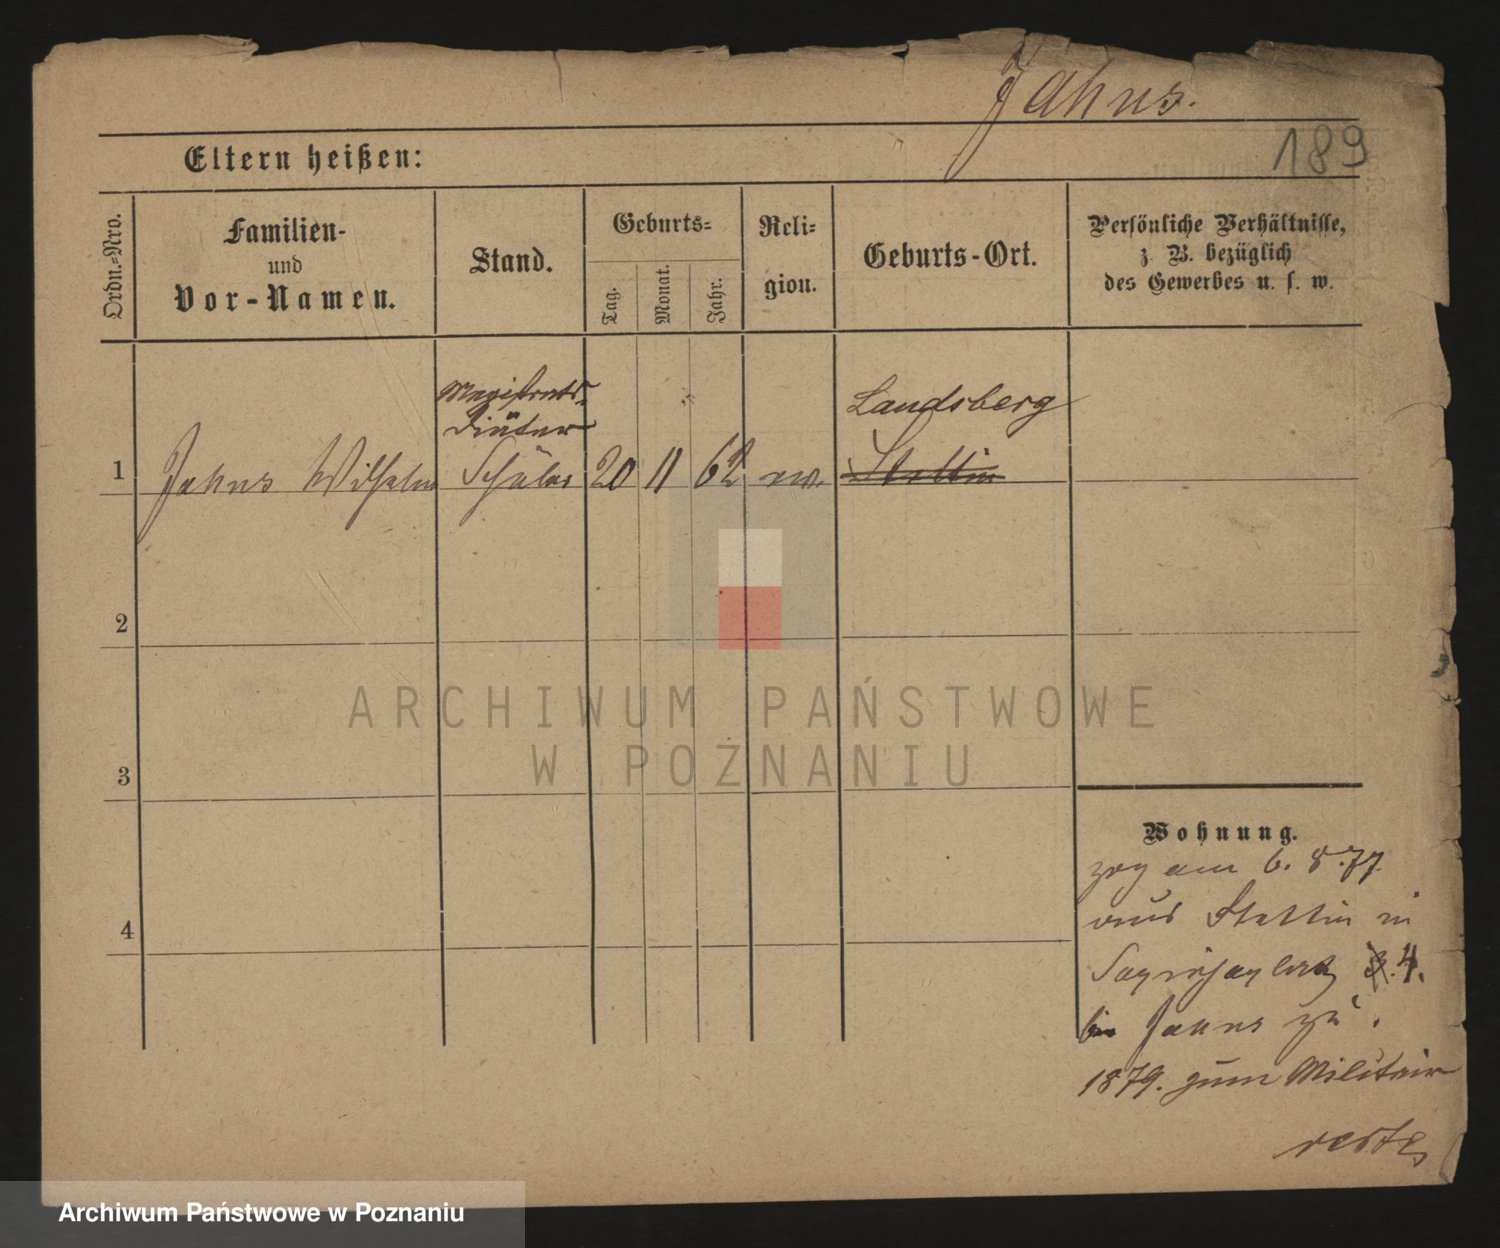 Jahns.
189
Eltern heißen:
Ordn.-Nro.
Familien-
und
Vor-Namen.
Stand.
Geburts-
Tag.
Monat.
Jahr.
Reli-
gion.
Geburts-Ort.
Persönliche Verhältnisse,
z. B. bezüglich
des Gewerbes u. s. w.
Magistrats-
Diätar
Landsberg
1 Jahns Wilhelm Schüler 20 11 62 ev. Stettin
2
3
4
ARCHIWUM PAŃSTWOWE
W POZNANIU
Wohnung.
zog am 6. 8. 77
aus Stettin in
Sapiehaplatz 4.
bei Jahns zu.
1879. zum Militair
Archiwum Państwowe w Poznaniu